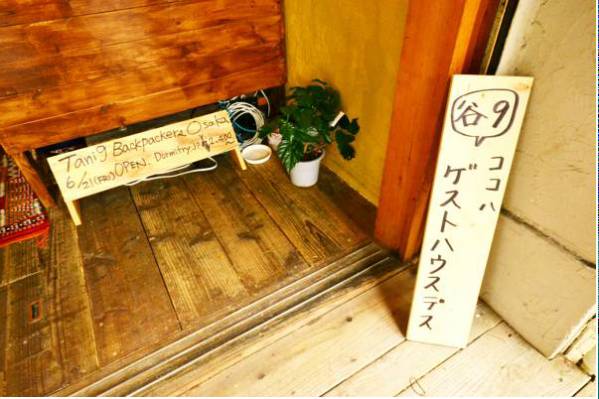 Tani9 Backpackers Osaka
6/21(FRI) OPEN. Dormitry
谷9
ココハ
ゲストハウスデス